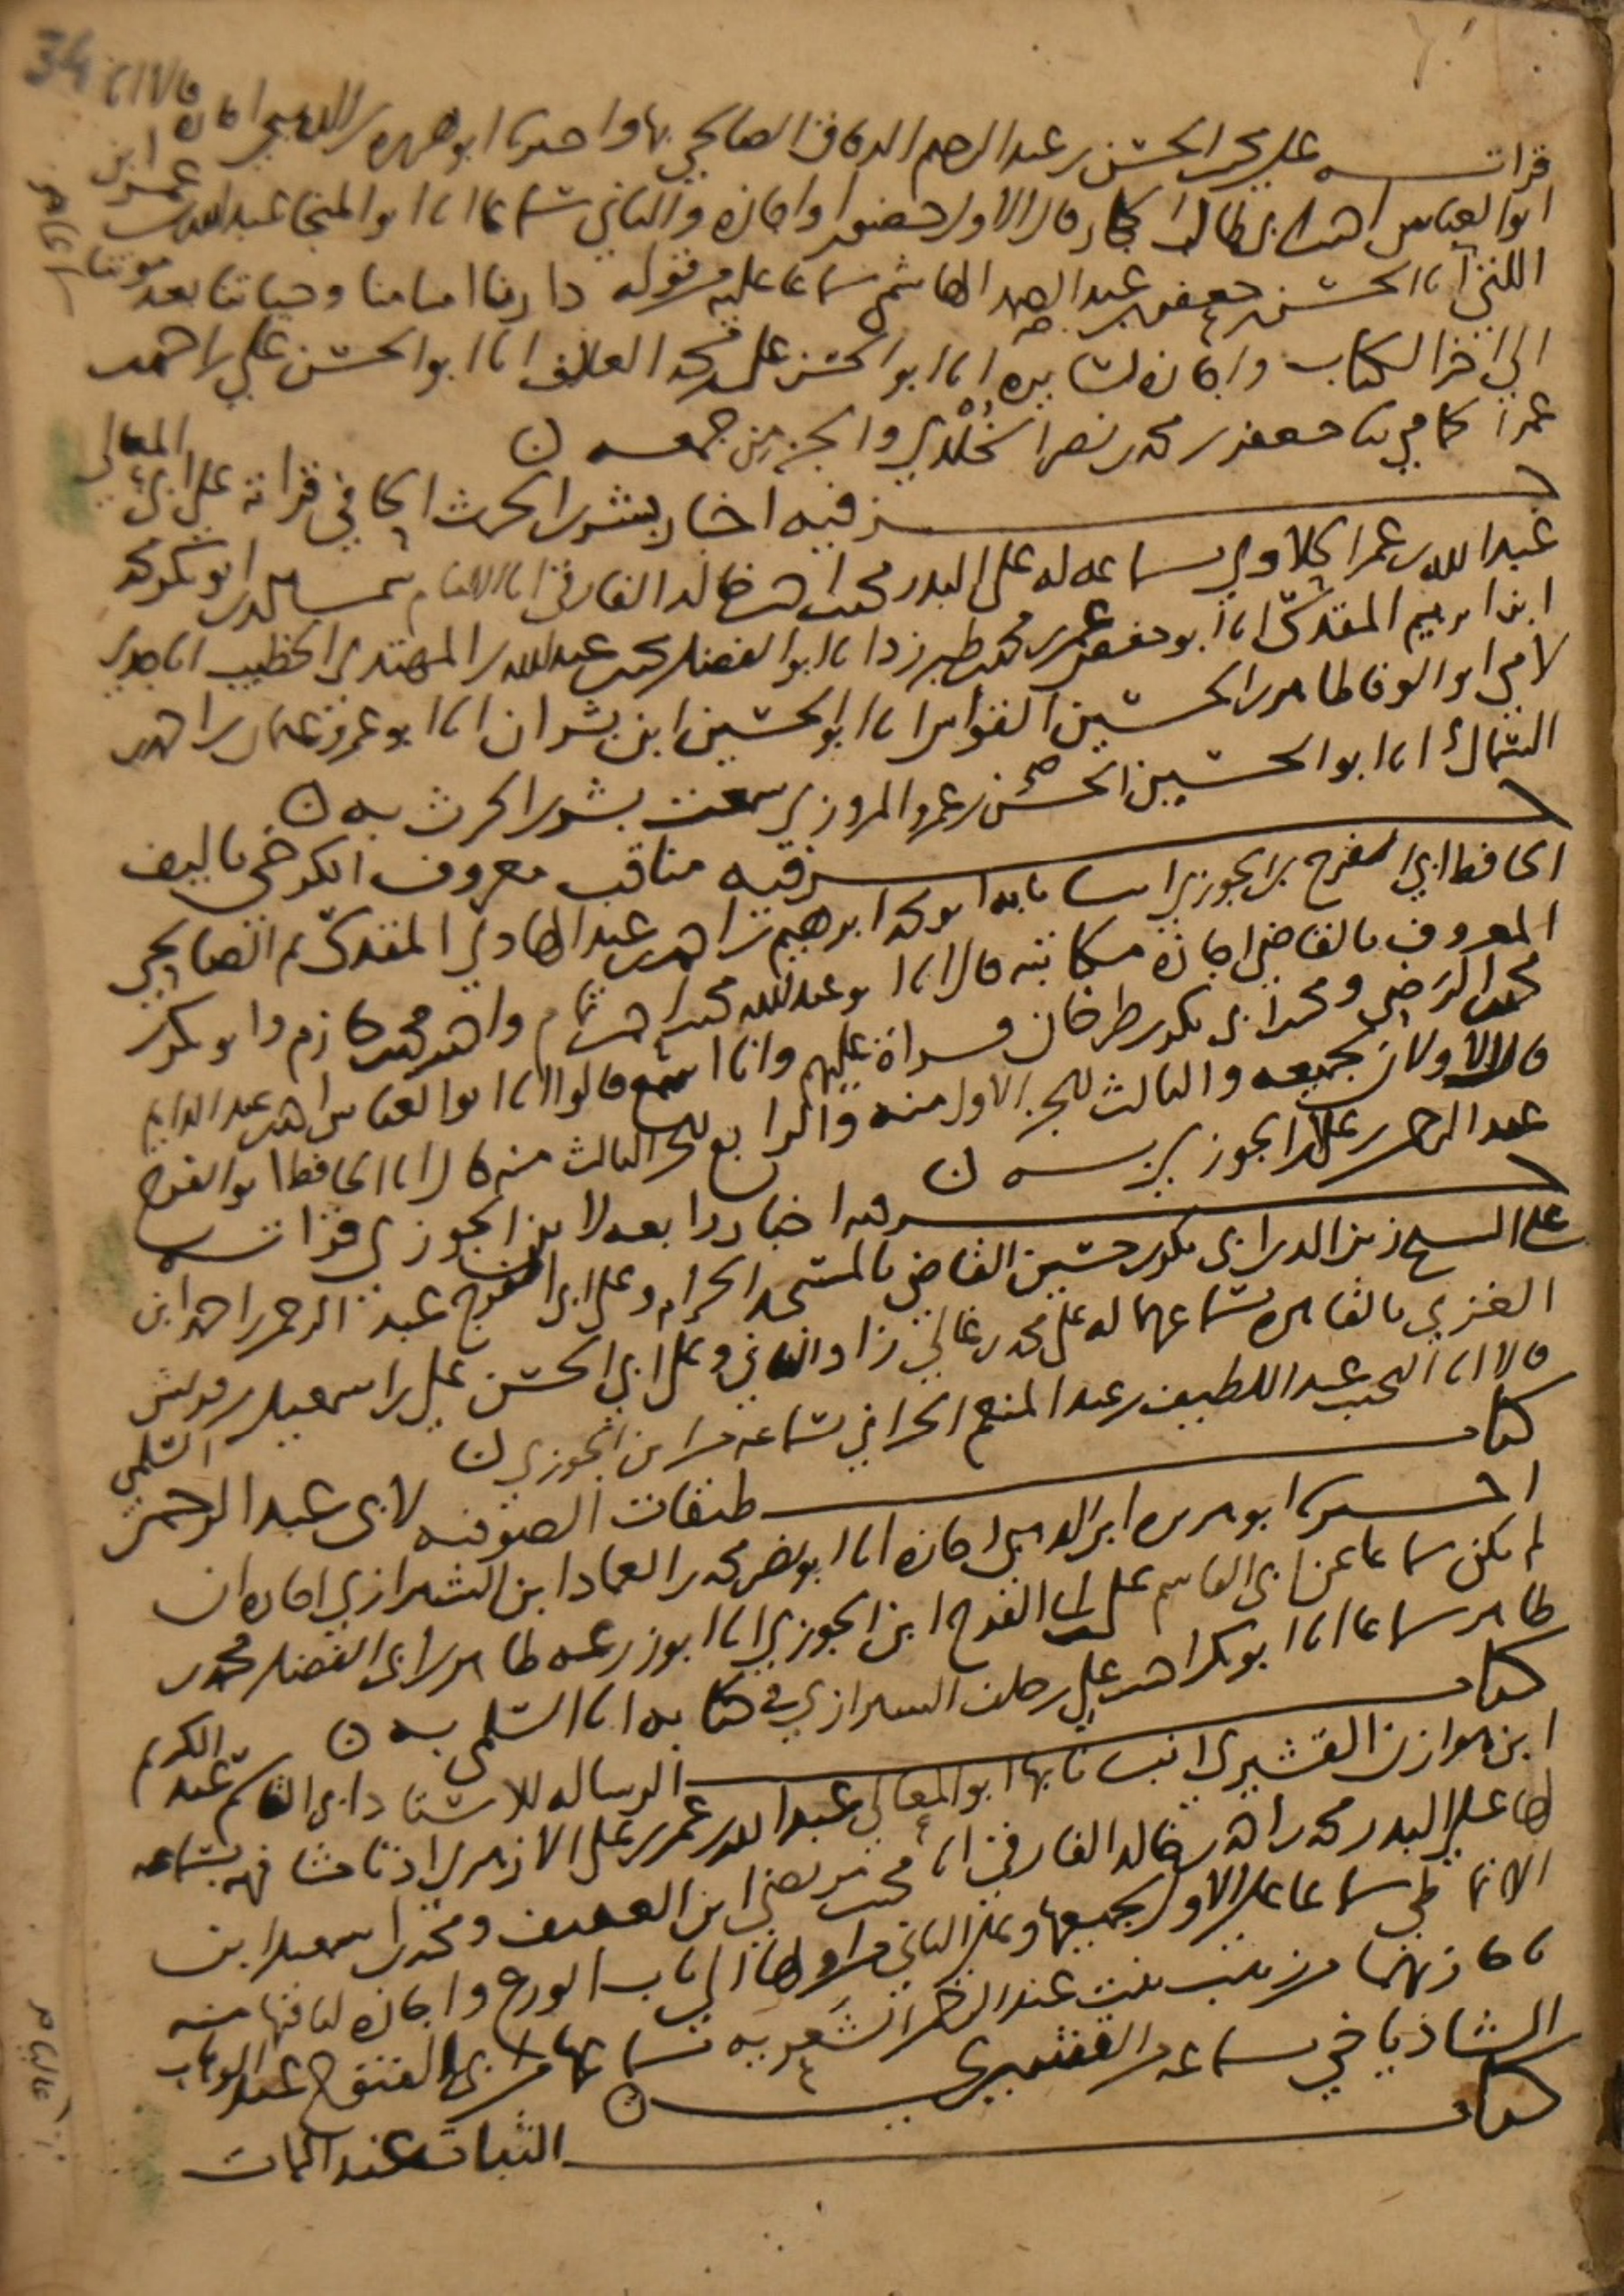 34
قرات على محمد بن الحسن بن عبد الرحيم الدقاق الصالحي بها واخبرنا ابو هريرة بن الذهبي اجازة قالا انا
ابو العباس احمد بن ابي طالب الحجار قال الاول حضورا واجازة والثاني سماعا انا ابو المنجا عبد الله بن عمر ابن
اللتي انا الحسن بن جعفر بن عبد الصمد الهاشمي سماعا عليه من قوله دارنا امامنا وحياتنا بعد موتنا
الى اخر الكتاب واجازة لسايره انا ابو الحسن علي بن محمد العلاف انا ابو الحسن علي بن احمد
عمر الحمامي ثنا جعفر بن محمد بن نصر الخلدي والجزء من جمعه ن
جزء فيه اخبار بشر بن الحرث الحافي قراته على ابي المعالي
عبد الله بن عمر الحلاوي بسماعه له على البدر محمد بن احمد بن خالد الفارقي انا الامام شمس الدين ابو بكر محمد
ابن ابرهيم المقدسي انا ابو حفص عمر بن محمد بن طبرزد انا ابو الفضل محمد بن عبد الله بن المهتدي الخطيب انا جدي
لامي ابو الوفا طاهر بن الحسين القواس انا ابو الحسين ابن بشران انا ابو عمرو عثمان بن احمد
السماك انا ابو الحسين الحسن بن عمرو المروزي سمعت بشر بن الحرث به ن
جزء فيه مناقب معروف الكرخي تاليف
الحافظ ابي الفرج بن الجوزي انبانا به ابو محمد ابرهيم بن احمد بن عبد الهادي المقدسي ثم الصالحي
المعروف بالقاضي اجازة مكاتبة قال انا ابو عبد الله محمد بن احمد بن تمام واحمد بن محمد بن حازم وابو بكر بن
محمد بن الرضي ومحمد بن ابي بكر بن طرخان قراة عليهم وانا اسمع قالوا انا ابو العباس احمد بن عبد الدايم
قال الاولان بجميعه والثالث للجزء الاول منه والرابع للجزء الثالث منه قال انا الحافظ ابو الفرج
عبد الرحمن بن علي بن الجوزي به ن
جزء فيه اخبار رابعة لابن الجوزي قرات
على الشيخ زين الدين ابي بكر بن حسين القاضي بالمسجد الحرام وعلى ابي الفرج عبد الرحمن بن احمد ابن
الغزي بالقاهرة بسماعهما له على محمد بن غالي زاد الثاني وعلى ابي الحسن علي بن اسمعيل بن قريش
قالا انا النجيب عبد اللطيف بن عبد المنعم الحراني بسماعه من ابن الجوزي ن
كتاب طبقات الصوفية لابي عبد الرحمن السلمي
اخبرنا ابو هريرة ابن الذهبي اجازة انا ابو نصر محمد بن العماد ابن الشيرازي اجازة ان
لم يكن سماعا عن ابي القاسم علي بن ابي الفرج ابن الجوزي انا ابو زرعة طاهر بن ابي الفضل محمد بن
طاهر سماعا انا ابو بكر احمد بن علي بن خلف الشيرازي في كتابه انا السلمي به ن
كتاب الرسالة للاستاذ ابي القاسم عبد الكريم
ابن هوازن القشيري انبانا بها ابو المعالي عبد الله بن عمر بن علي الازهري اذنا مشافهة بسماعه
لها على البدر محمد بن احمد بن خالد الفارقي انا محمد بن مرتضى ابن العفيف ومحمد بن اسمعيل ابن
الانماطي سماعا على الاول بجميعها وعلى الثاني من اولها الى باب الورع واجازة لباقيها منه
باجازتهما من زينب بنت عبد الرحمن الشعرية بسماعها من ابي الفتوح عبد الوهاب
الشاذياخي بسماعه من القشيري ن
كتاب الثبات عند الممات